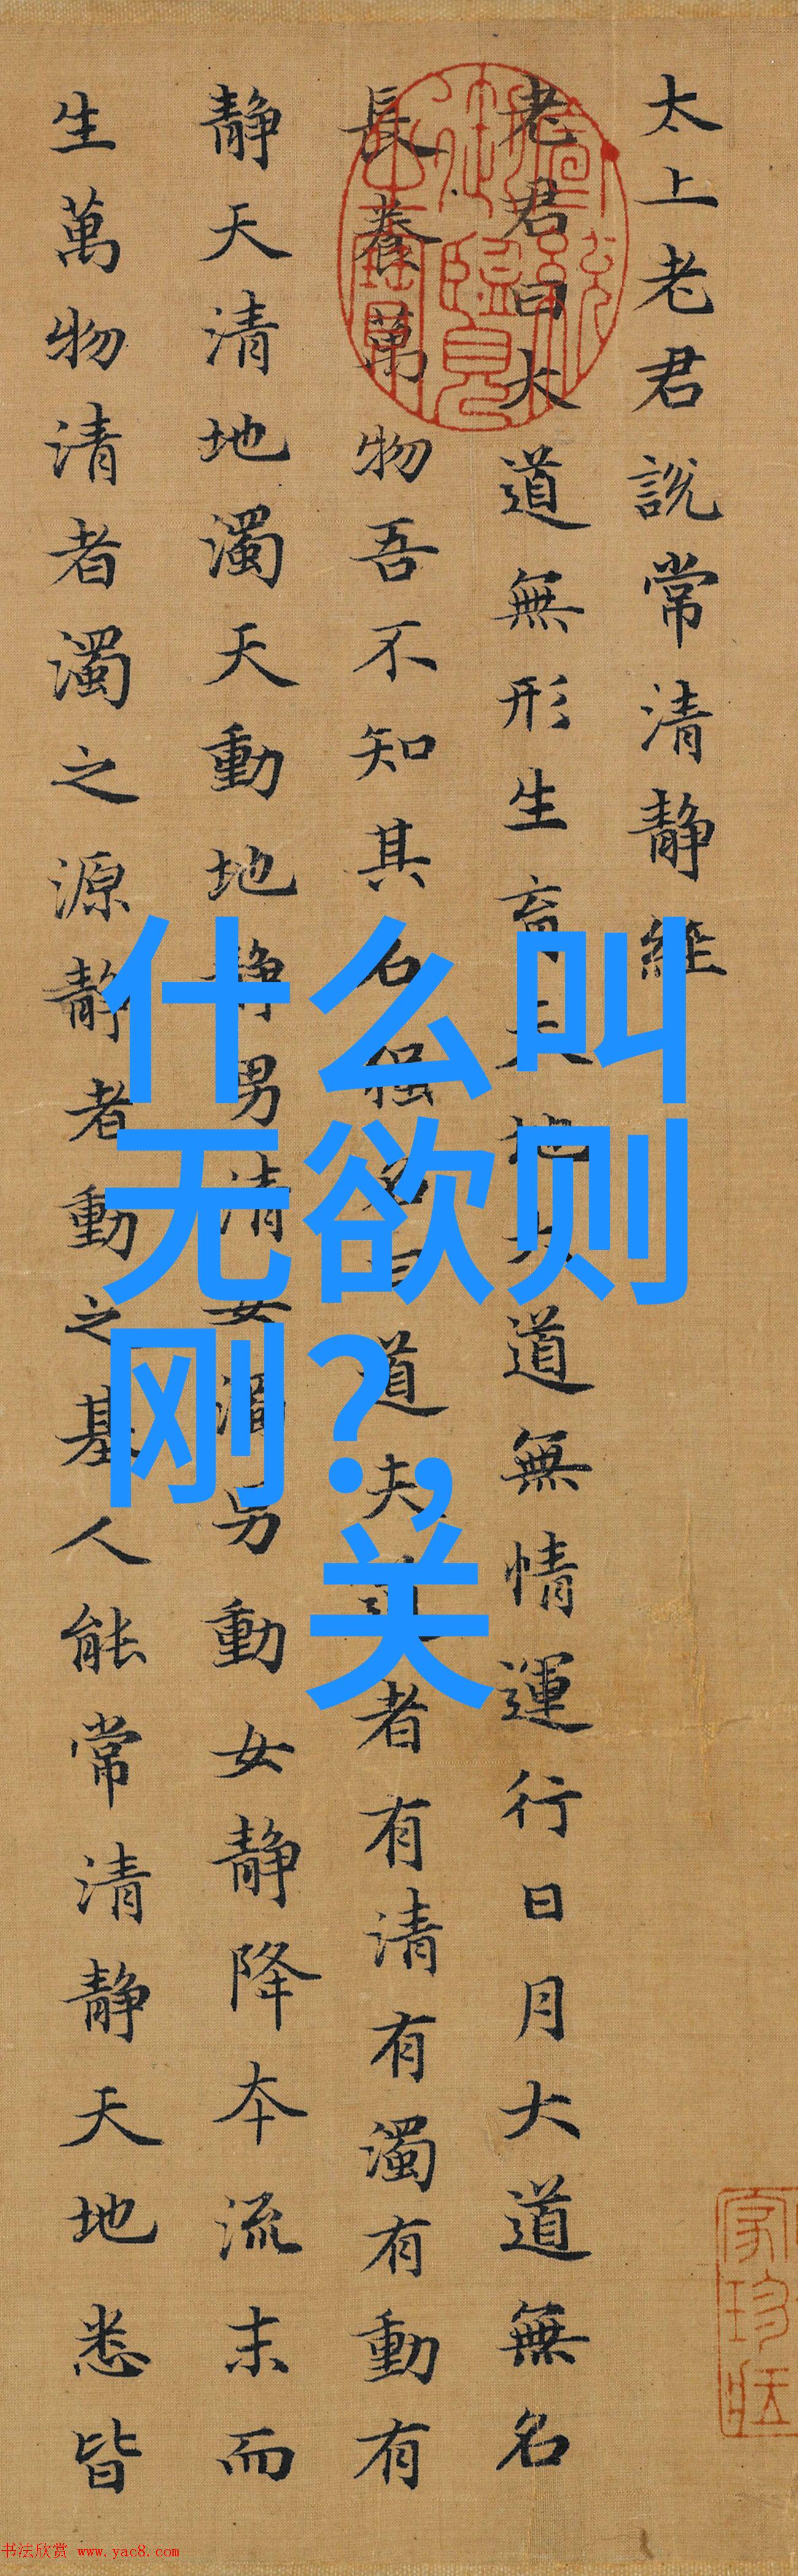 太上老君說常清静經
老君曰大道無形生育天地大道無情運行日月大道無名
長養萬物吾不知其名強名曰道夫道者有清有濁有動有
静天清地濁天動地静男清女濁男動女静降本流末而
生萬物清者濁之源静者動之基人能常清静天地悉皆
什么叫
无欲则
刚?,
关
书法欣赏 www.yac8.com